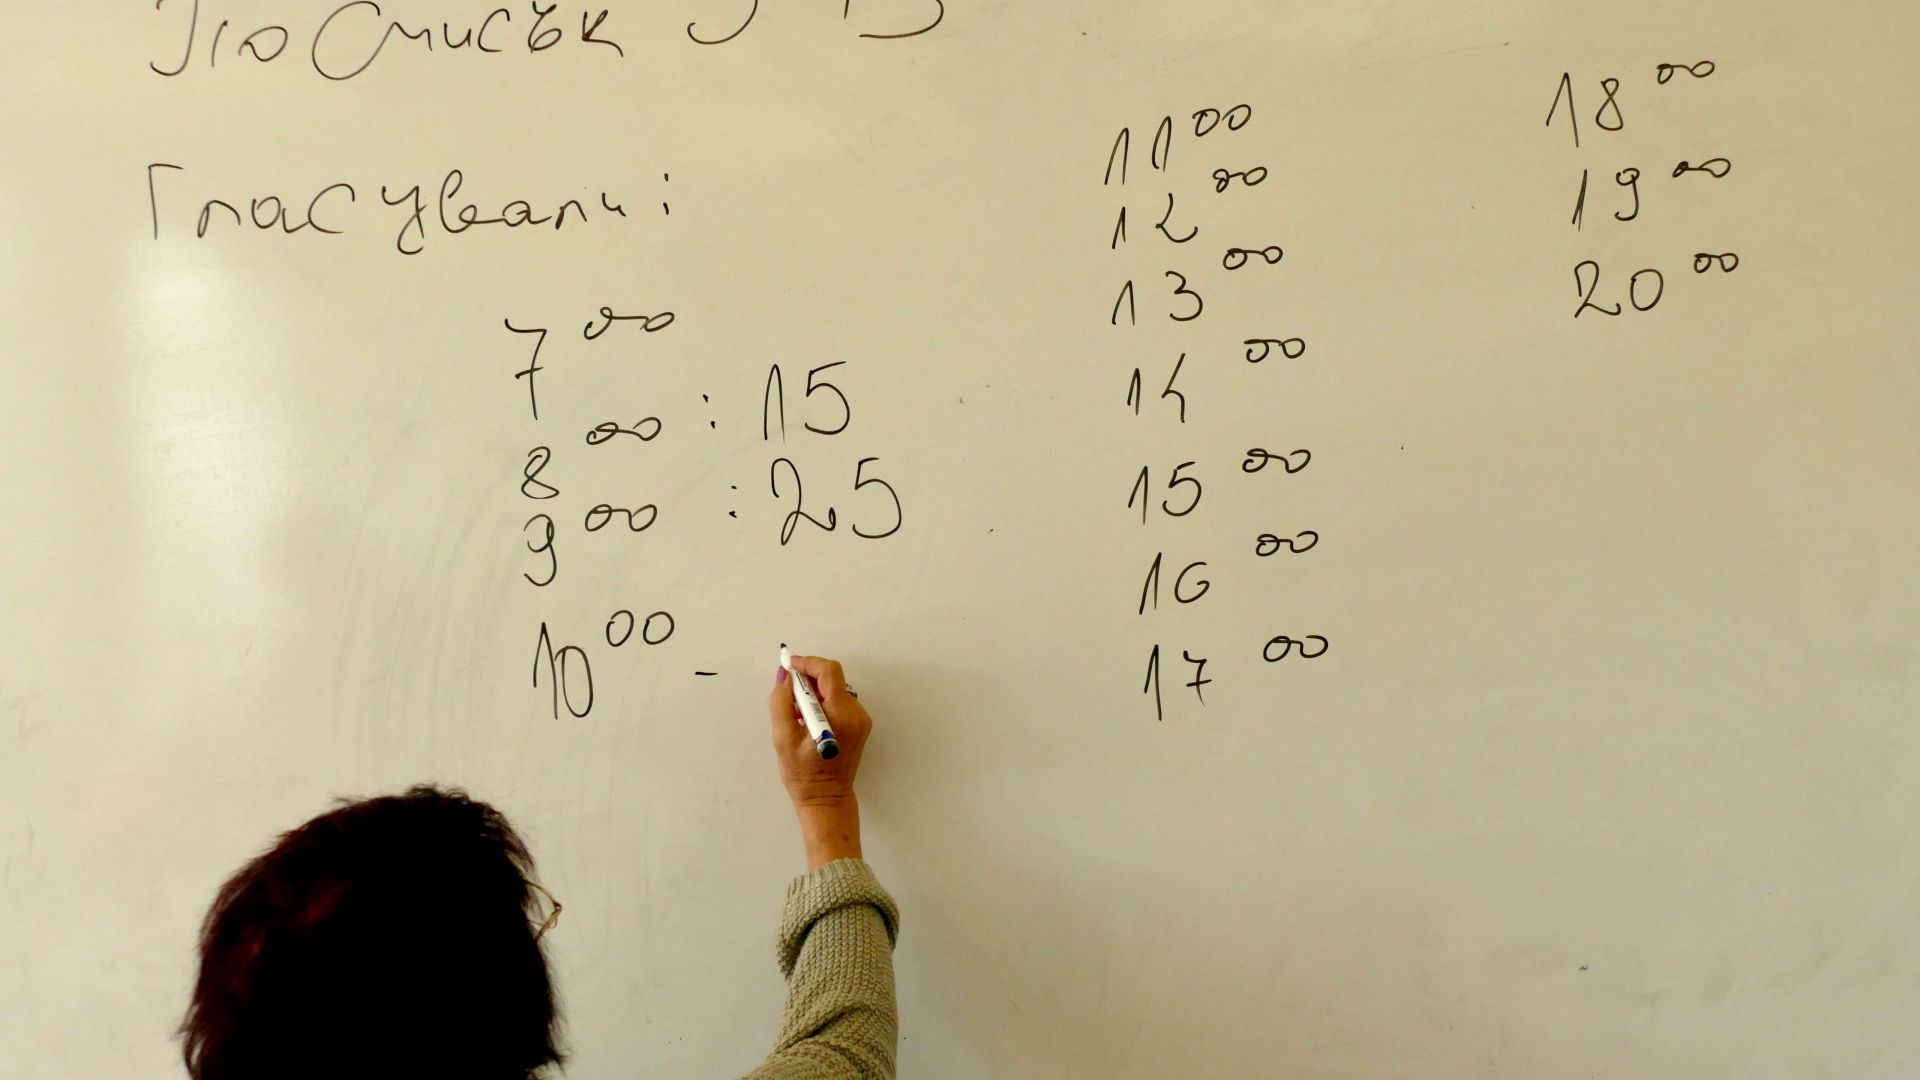 По списък
Гласували:
7⁰⁰
8⁰⁰ : 15
9⁰⁰ : 25
10⁰⁰ -
11⁰⁰
12⁰⁰
13⁰⁰
14⁰⁰
15⁰⁰
16⁰⁰
17⁰⁰
18⁰⁰
19⁰⁰
20⁰⁰